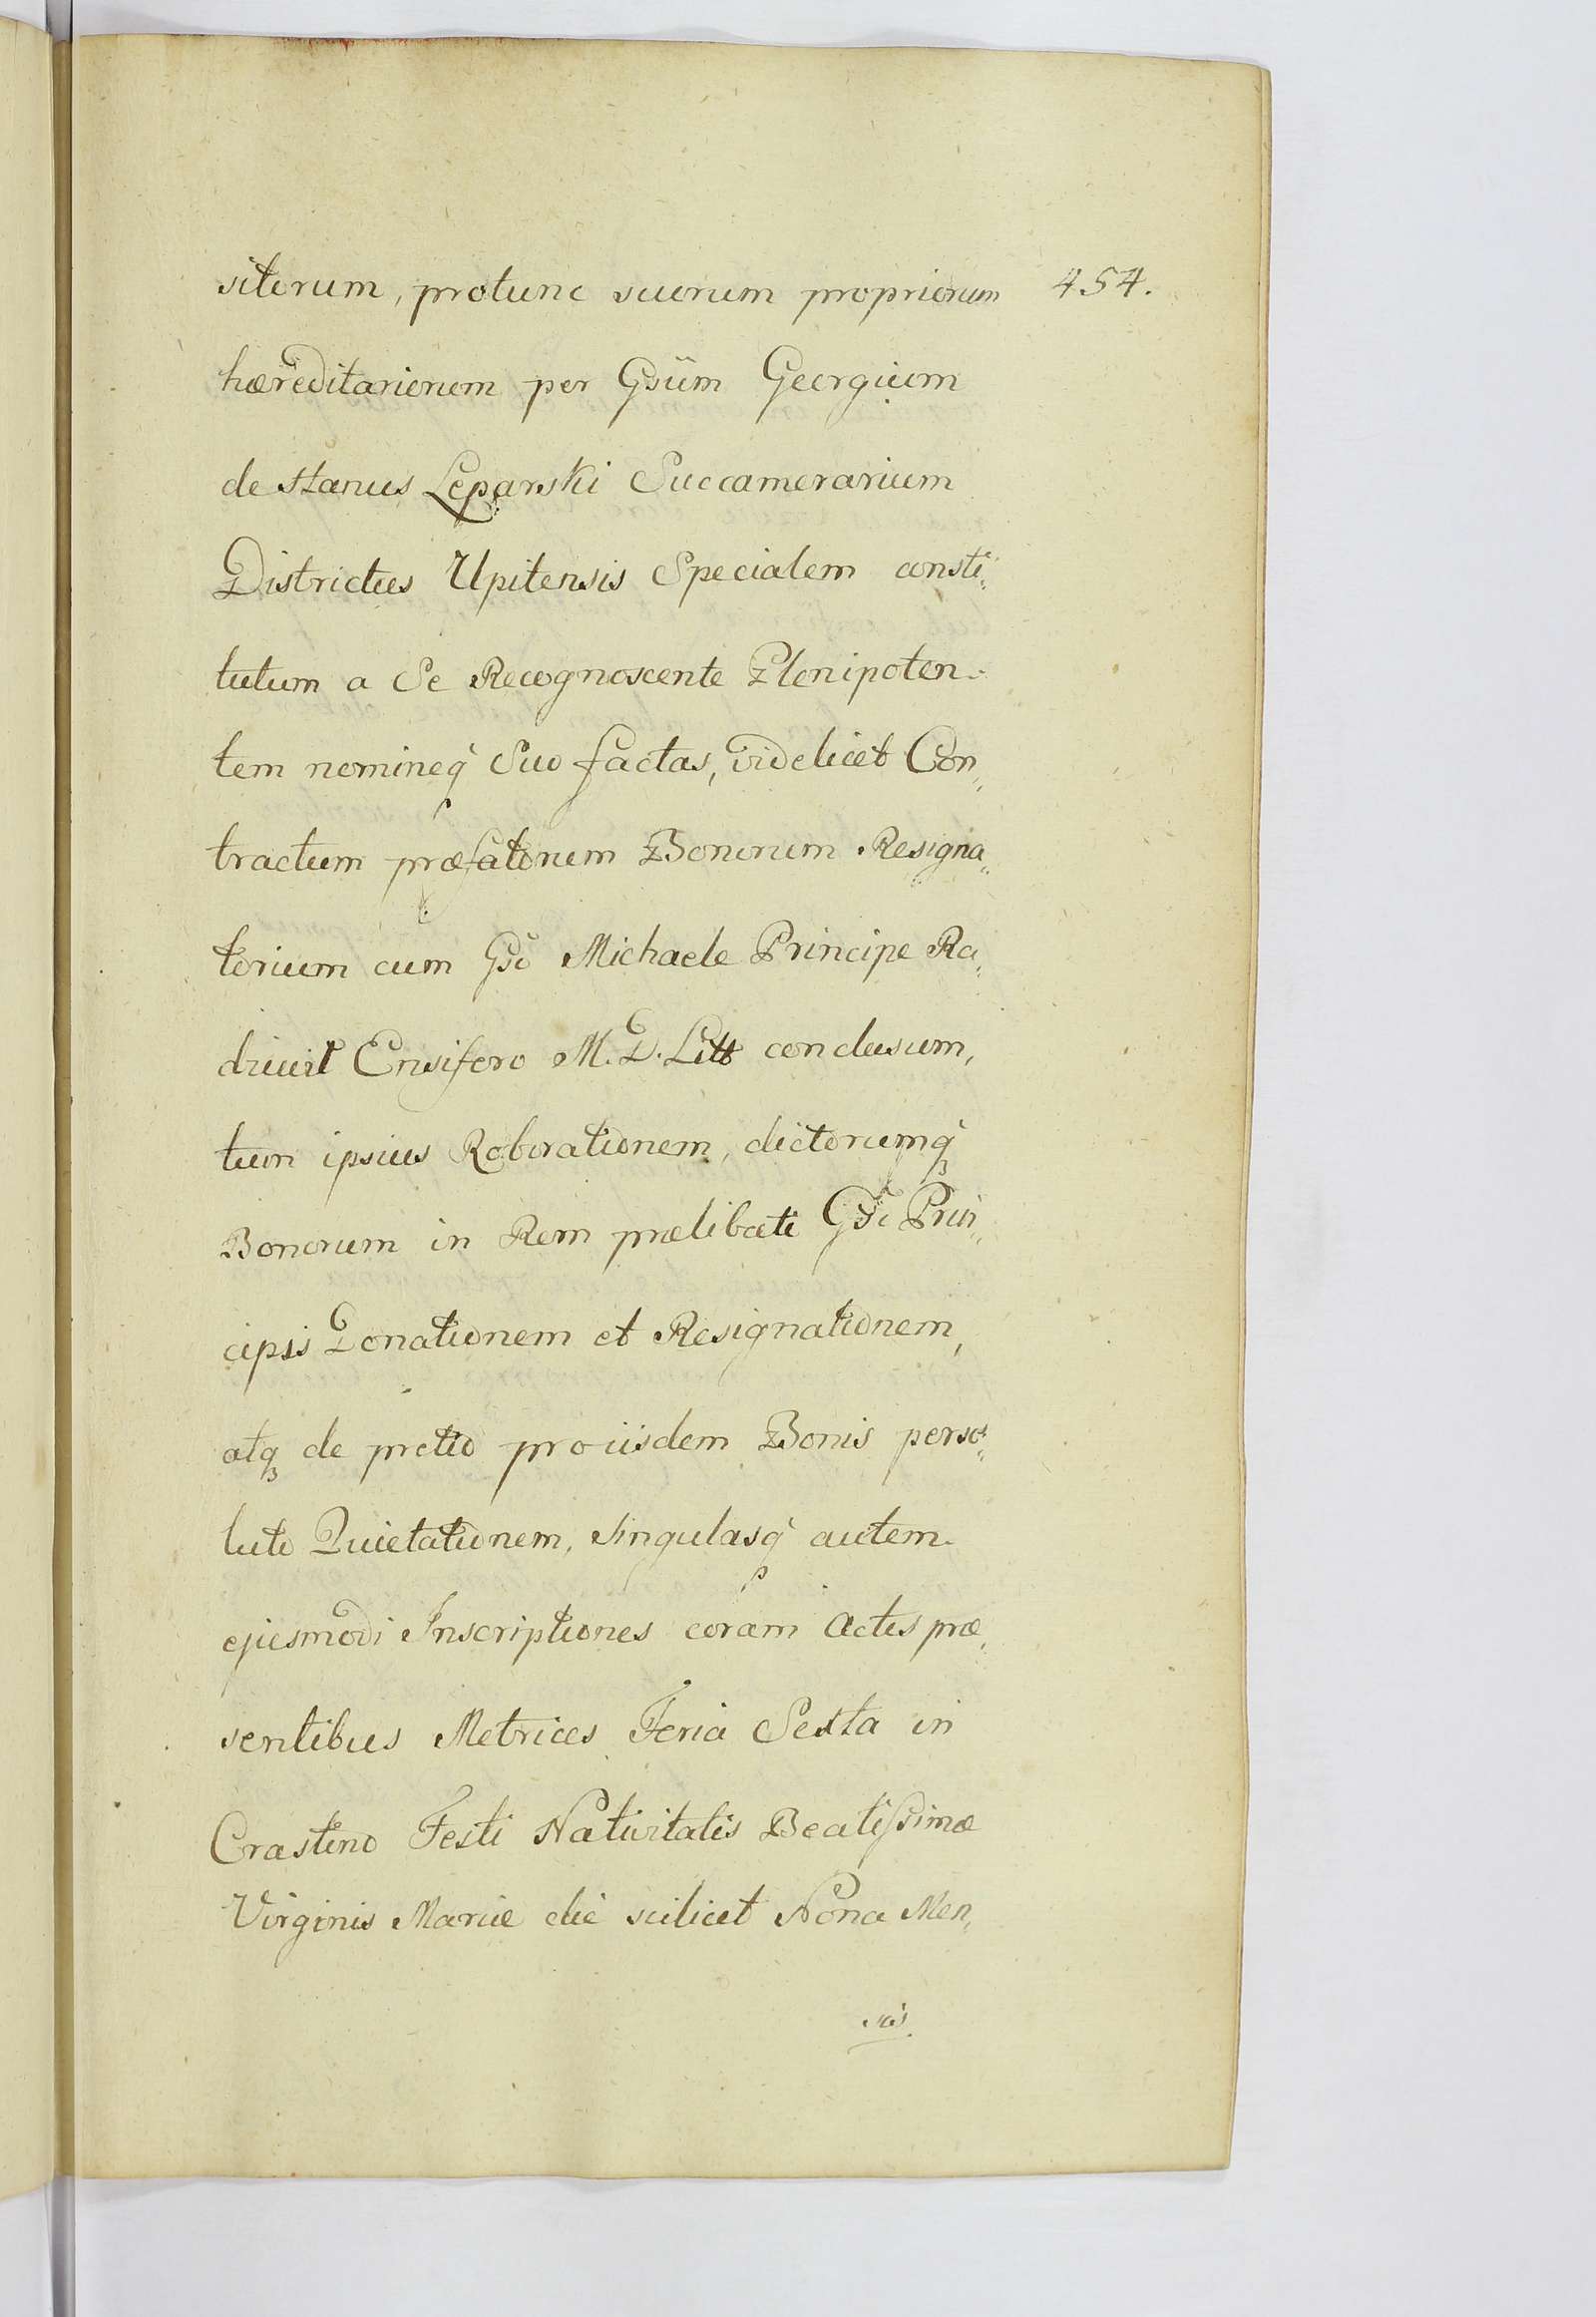 sitorum, protunc suorum propriorum 454.
hæreditariorum per Gsum Georgium
de Hanus Leparski Succamerarium
Districtus Upitensis Specialem consti„
tutum a Se Recognoscente Plenipoten„
tem nomineq̃ Suo factas, videlicet Con„
tractum præfatorum Bonorum Resigna„
torium cum Gso Michaele Principe Ra„
divil Ensifero M. D. Litt conclusum,
tum ipsius Roborationem, dictorumq̃
Bonorum in Rem prælibati Gsi Prin„
cipis Donationem et Resignationem,
atq̃ de pretio pro iisdem Bonis perso„
luto Quietationem, singulasq̃ autem
ejusmodi Inscriptiones coram Actis præ„
sentibus Metrices Feria Sexta in
Crastino Festi Nativitatis Beatissimæ
Virginis Mariæ die scilicet Nona Men„
sis